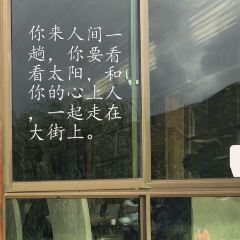 你来人间一
趟，你要看
看太阳，和
你的心上人
，一起走在
大街上。